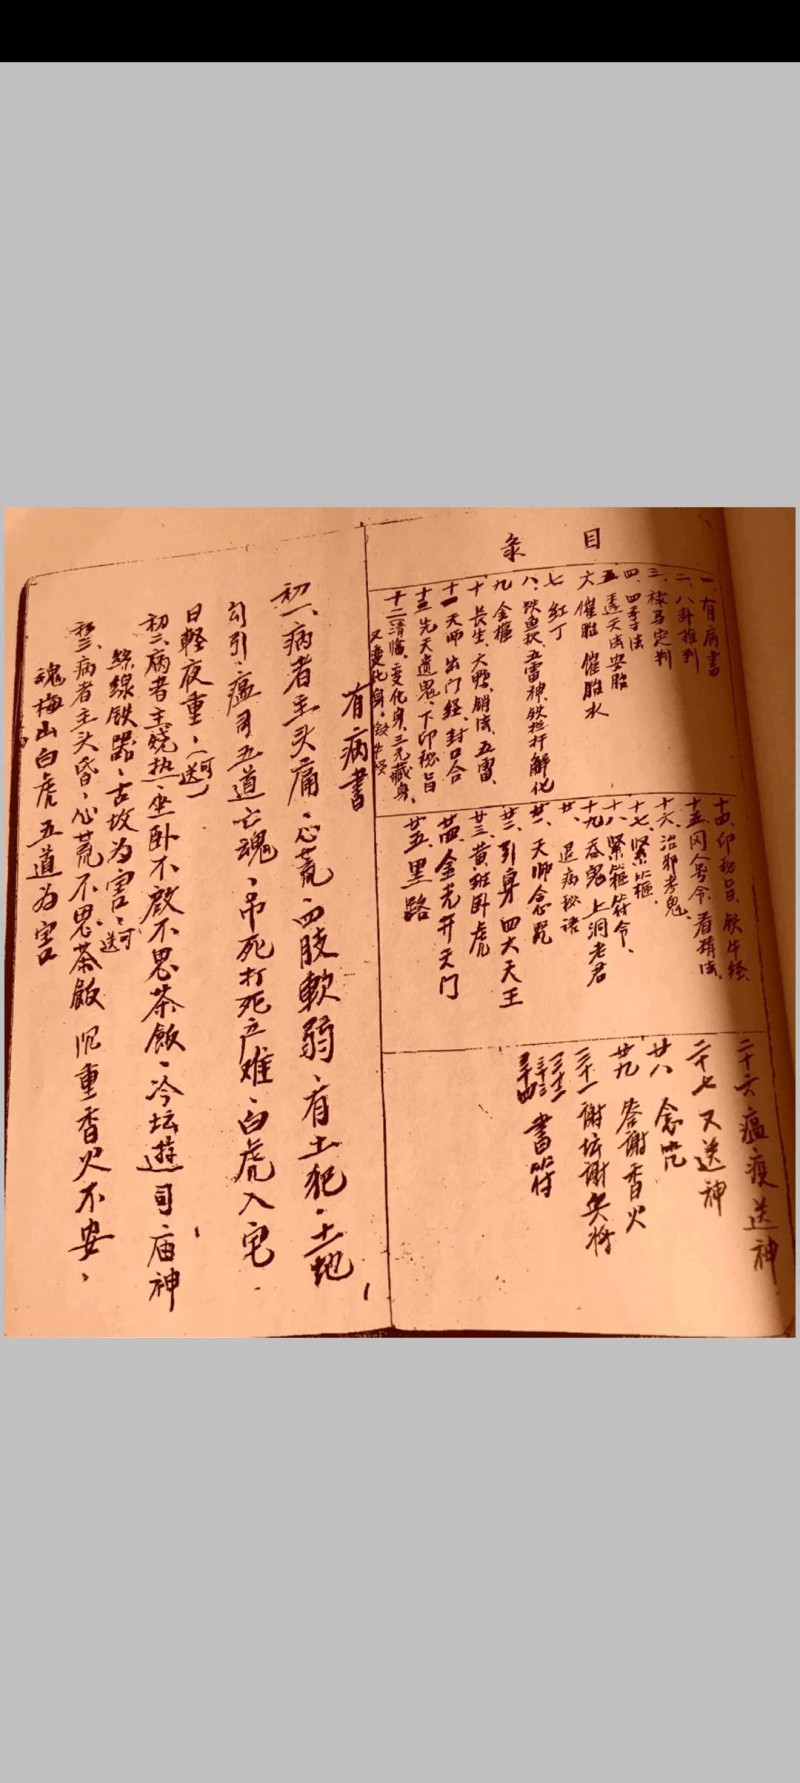 目录
一、有病書
二、八卦推判
三、禄马定判
四、四季法
五、遣天法安胎
六、催胎 催胎水
七、红丁
八、铁鱼秋、五雷神、铁拦杆解化
九、金櫃
十、长生、大鸭、销法、五雷、
十一、天师出门经、封口合
十三、先天遣鬼、下印秘旨
十二、清临、变化身、三元藏身、
又変化身
十四、印秘旨、铁牛经、
十五、冈人号令、看猪法、
十六、治邪考鬼、
十七、紧箍、
十八、紧箍符令、
十九、吞鬼 上洞老君
廿、退病秘语
廿一、天师念咒
廿二、引身 四大天王
廿三、黄班卧虎
廿四、金光开天门
廿五、黑路
二十六 瘟疫送神
二十七 又送神
廿八 念咒
廿九 答谢香火
三十一 谢坛谢兵将
三十二
三十三 書符
三十四
有病書
初一、病者主头痛、心荒、四肢軟弱、有土犯、土地
勾引、瘟司五道亡魂、吊死打死产难、白虎入宅
日輕夜重、(可送)
初二、病者主烧热、坐卧不啟不思茶飯、冷坛遊司、庙神
絲線铁器、古坟为害、可送
初三、病者主头昏、心荒不思茶飯 沉重香火不安、
魂梅山白虎 五道为害
1